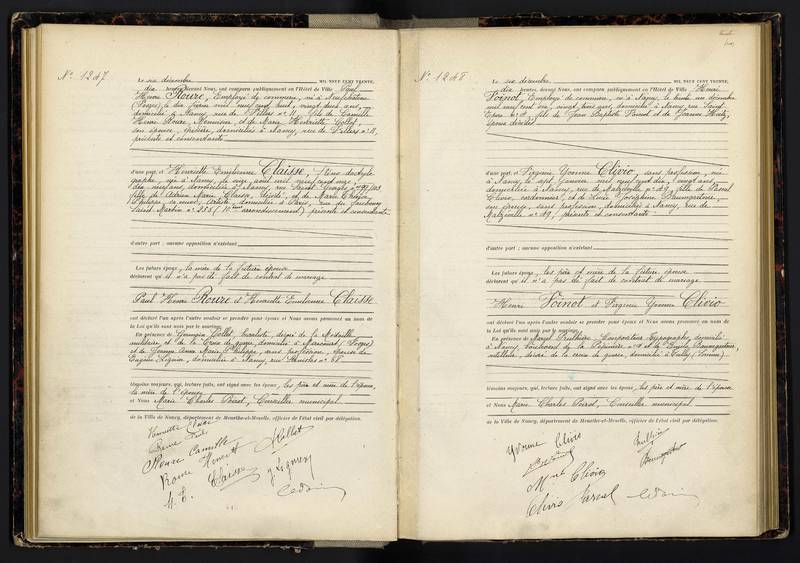 N° 1247
Le six décembre MIL NEUF CENT TRENTE,
dix heures devant Nous, ont comparu publiquement en l'Hôtel de Ville Paul
Henri Roure, Employé de commerce, né à Neufchâteau
(Vosges) le dix février mil neuf cent huit, vingt deux ans,
domicilié à Nancy, rue de Villers n° 11, fils de Camille
Henri Roure, Menuisier, et de Marie Henriette Collot,
son épouse, domiciliés à Nancy, rue de Villers n° 11,
présents et consentants
d'une part, et Henriette Emilienne Claisse, Sténo dactylo-
graphe, née à Nancy, le août mil neuf cent onze
dix neuf ans, domiciliée à Nancy, rue Saint Georges
fille de Marie Claisse, décédé, et de Marie
Philippe, sa veuve, domiciliée à Paris, rue du Faubourg
Saint Martin n° 235 (10ème arrondissement) présente et consentante
d'autre part ; aucune opposition n'existant
Les futurs époux, la mère de la future épouse
déclarent qu'il n'a pas été fait de contrat de mariage
Paul Henri Roure et Henriette Emilienne Claisse
ont déclaré l'un après l'autre vouloir se prendre pour époux et Nous avons prononcé au nom de
la Loi qu'ils sont unis par le mariage.
En présence de Germain Collot, décoré de la Médaille
militaire et de la Croix de guerre, domicilié à (Vosges)
et de Marie Philippe, sans profession, épouse de
Eugène domiciliée à Nancy, rue n° 68
témoins majeurs, qui, lecture faite, ont signé avec les époux, les père et mère de l'époux,
la mère de l'épouse
et Nous Marie Charles Poirot, Conseiller municipal
de la Ville de Nancy, département de Meurthe-et-Moselle, officier de l'état civil par délégation.
Henriette Claisse
Roure Paul
Roure Camille
Collot
Roure Henriette
Claisse
N° 1248
Le six décembre MIL NEUF CENT TRENTE,
dix heures, devant Nous, ont comparu publiquement en l'Hôtel de Ville Henri
Poinot, Employé de commerce, né à Nancy, le trente un décembre
mil neuf cent six, vingt trois ans, domicilié à Nancy rue Saint
Epvre n° 4, fils de Jean Baptiste Poinot et de Jeanne
époux décédés
d'une part, et Virginie Yvonne Clivio, sans profession, née
à Nancy, le sept janvier mil neuf cent dix, vingt ans,
domiciliée à Nancy, rue de Malzéville n° 49, fille de Pascal
Clivio, cordonnier, et de Joséphine Baumgartner,
son épouse, sans profession, domiciliés à Nancy, rue de
Malzéville n° 49, présents et consentants
d'autre part ; aucune opposition n'existant
Les futurs époux, les père et mère de la future épouse
déclarent qu'il n'a pas été fait de contrat de mariage
Henri Poinot et Virginie Yvonne Clivio
ont déclaré l'un après l'autre vouloir se prendre pour époux et Nous avons prononcé au nom de
la Loi qu'ils sont unis par le mariage.
En présence de Marcel Compositeur typographe, domicilié
à Nancy, boulevard de la Pépinière n° et de Emile Baumgartner,
décoré de la croix de guerre, domicilié à
témoins majeurs, qui, lecture faite, ont signé avec les époux, les père et mère de l'épouse
et Nous Marie Charles Poirot, Conseiller municipal
de la Ville de Nancy, département de Meurthe-et-Moselle, officier de l'état civil par délégation.
Yvonne Clivio
Mme Clivio
Clivio Pascal